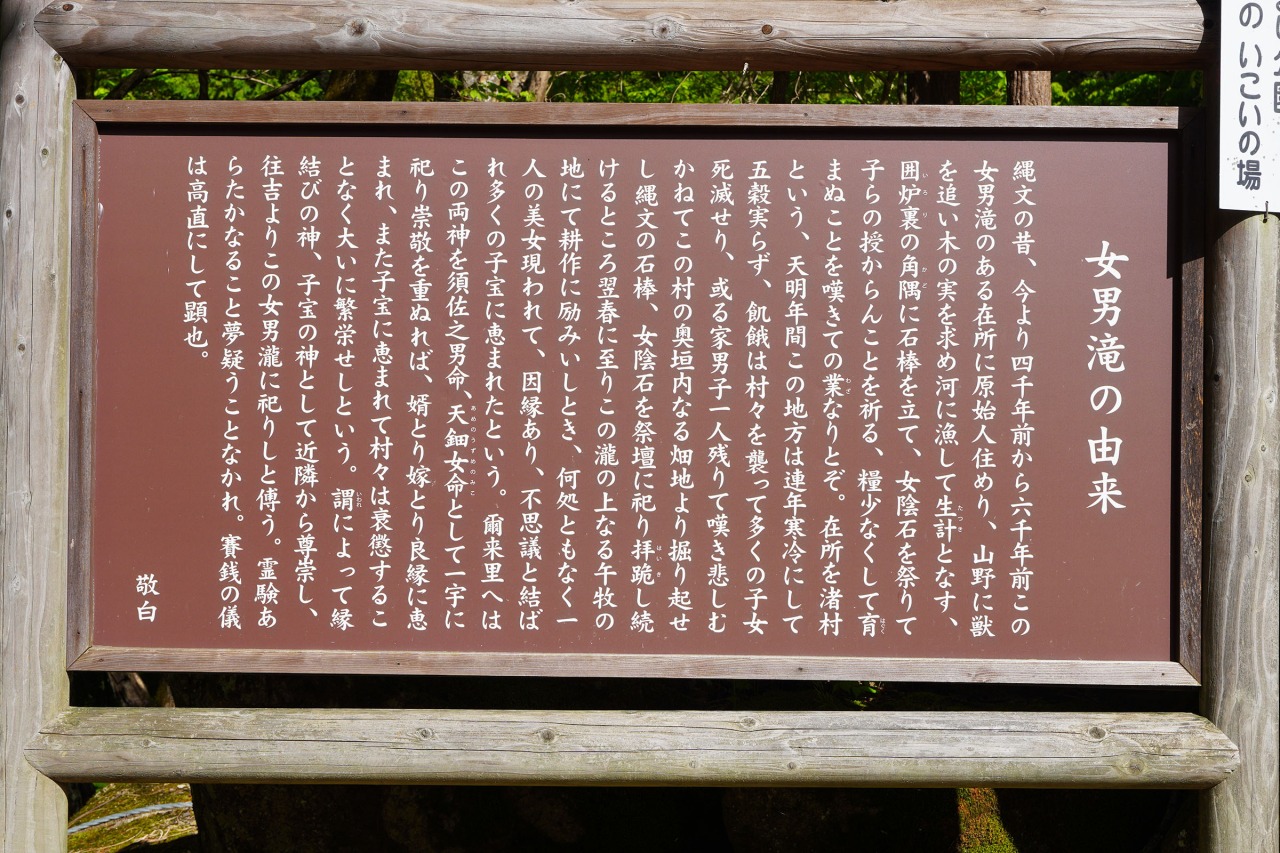 女男滝の由来
縄文の昔、今より四千年前から六千年前この
女男滝のある在所に原始人住めり、山野に獣
を追い木の実を求め河に漁して生計となす、
囲炉裏の角隅に石棒を立て、女陰石を祭りて
子らの授からんことを祈る、糧少なくして育
まぬことを嘆きての業なりとぞ。在所を渚村
という、天明年間この地方は連年寒冷にして
五穀実らず、飢餓は村々を襲って多くの子女
死滅せり、或る家男子一人残りて嘆き悲しむ
かねてこの村の奥垣内なる畑地より掘り起せ
し縄文の石棒、女陰石を祭壇に祀り拝跪し続
けるところ翌春に至りこの瀧の上なる午牧の
地にて耕作に励みいしとき、何処ともなく一
人の美女現われて、因縁あり、不思議と結ば
れ多くの子宝に恵まれたという。爾来里へは
この両神を須佐之男命、天鈿女命として一宇に
祀り崇敬を重ぬれば、婿とり嫁とり良縁に恵
まれ、また子宝に恵まれて村々は衰懲するこ
となく大いに繁栄せしという。謂によって縁
結びの神、子宝の神として近隣から尊崇し、
往吉よりこの女男瀧に祀りしと傳う。霊験あ
らたかなること夢疑うことなかれ。賽銭の儀
は高直にして顕也。
敬白
のいこいの場